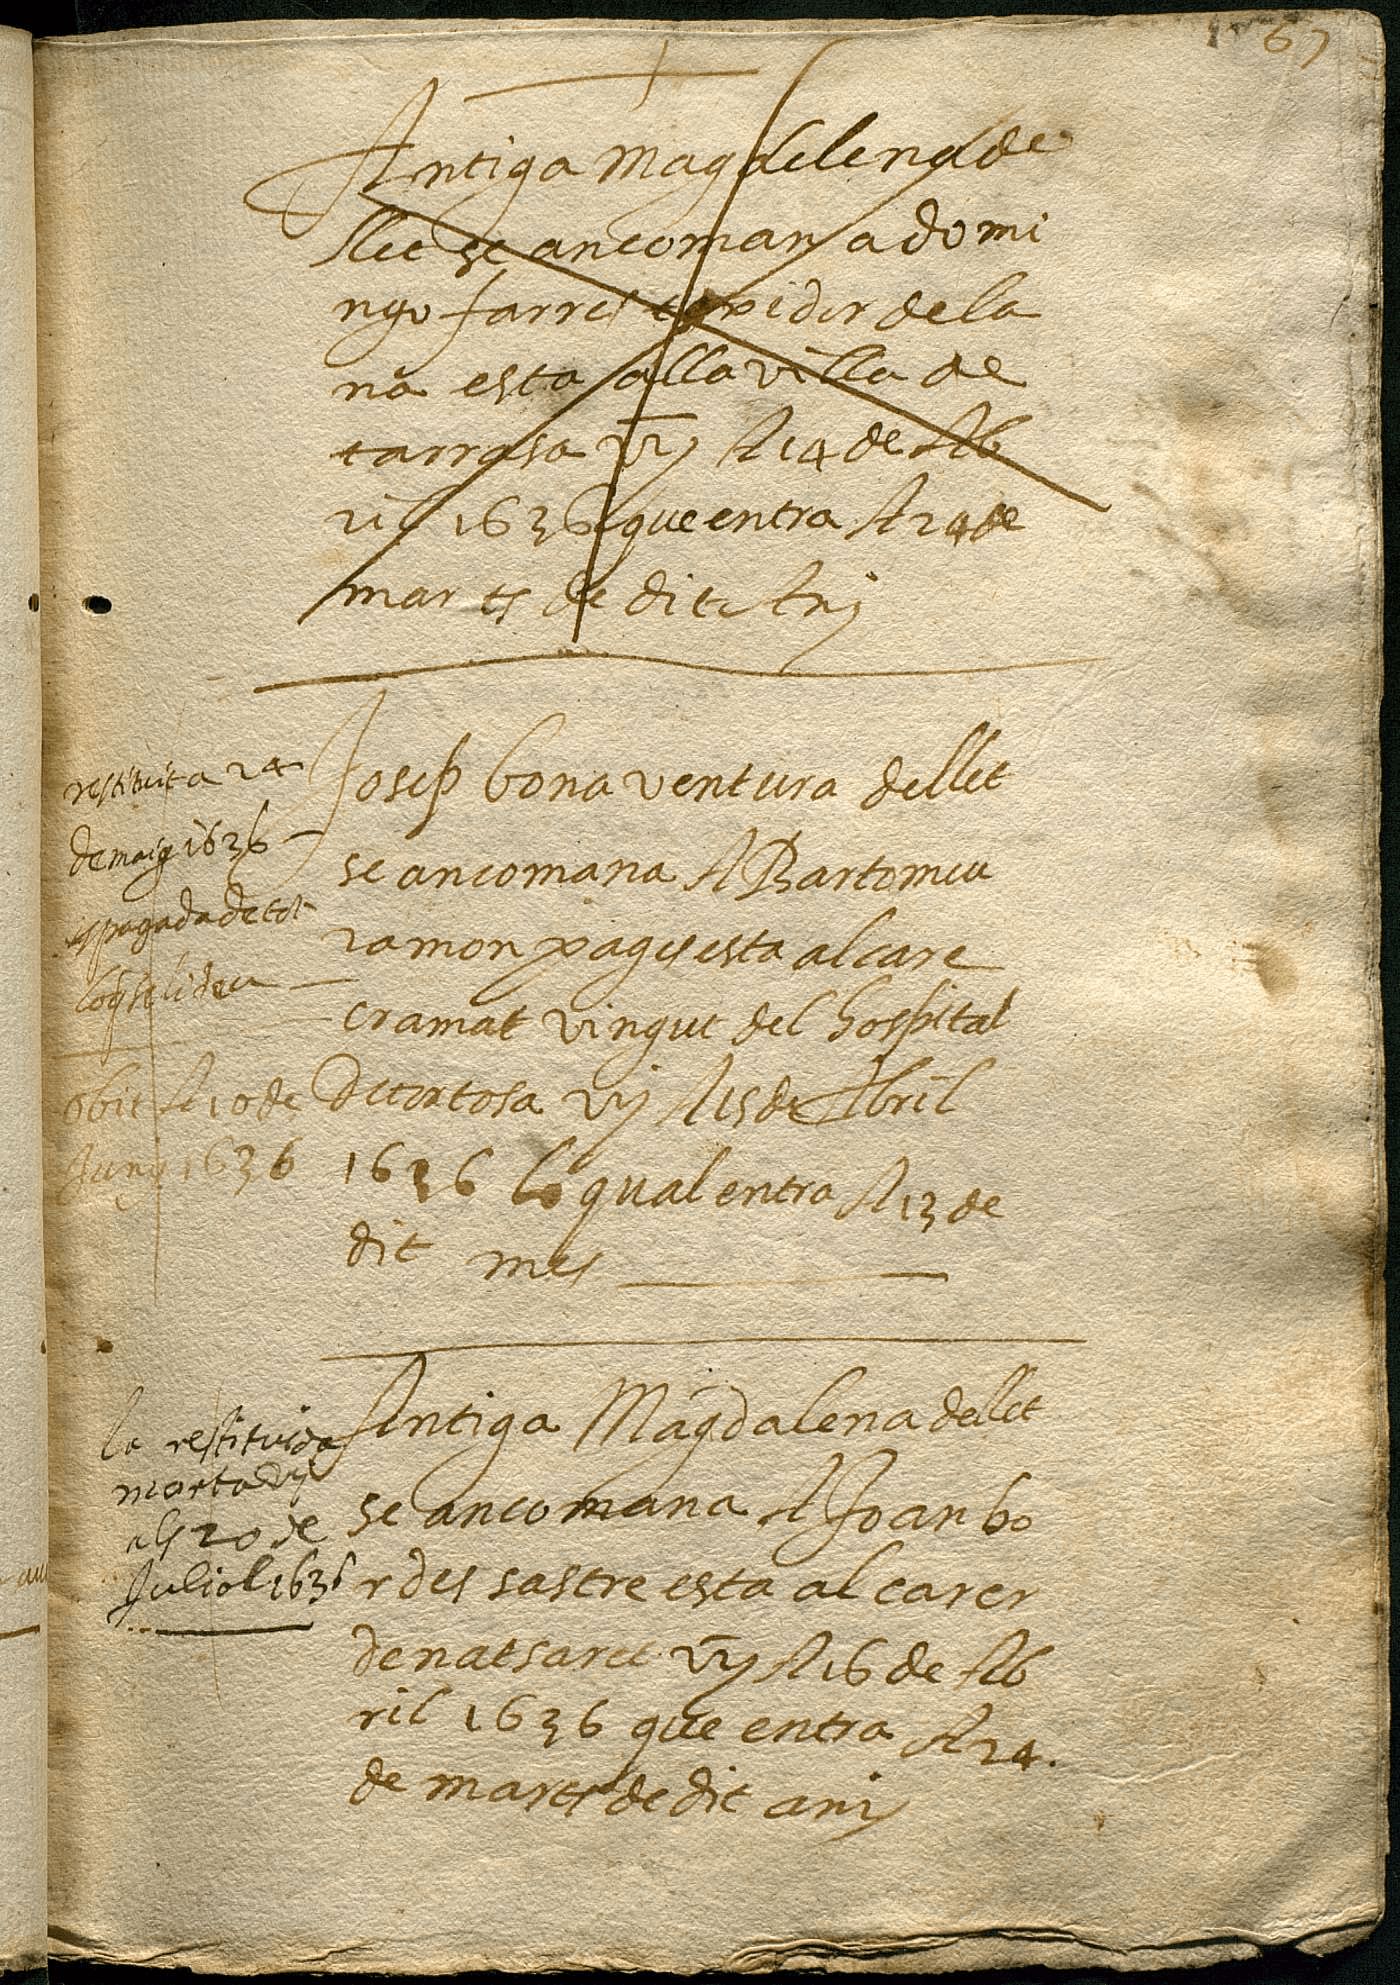 67
Antiga Magdelena de
llet se ancomana a domi
ngo farres texidor de la
na esta alla villa de
tarrasa vuy A 14 de Ab
ril 1636 que entra A 24 de
marts de dit Any
restituit a 24
de maig 1636
es pagada de tot
lo q se li deu
obit A 10 de
Juny 1636
Josep bonaventura de llet
se ancomana A Bartomeu
ramon pages esta al care
cramat vingut del hospital
de tortosa vuy A 15 de Abril
1636 lo qual entra A 13 de
dit mes
la restituida
morta vuy
als 20 de
Juliol 1636
Antiga Magdalena de llet
se ancomana A Joan bo
rdes sastre esta al carer
de natsaret vuy A 16 de Ab
ril 1636 que entra A 24.
de marts de dit any